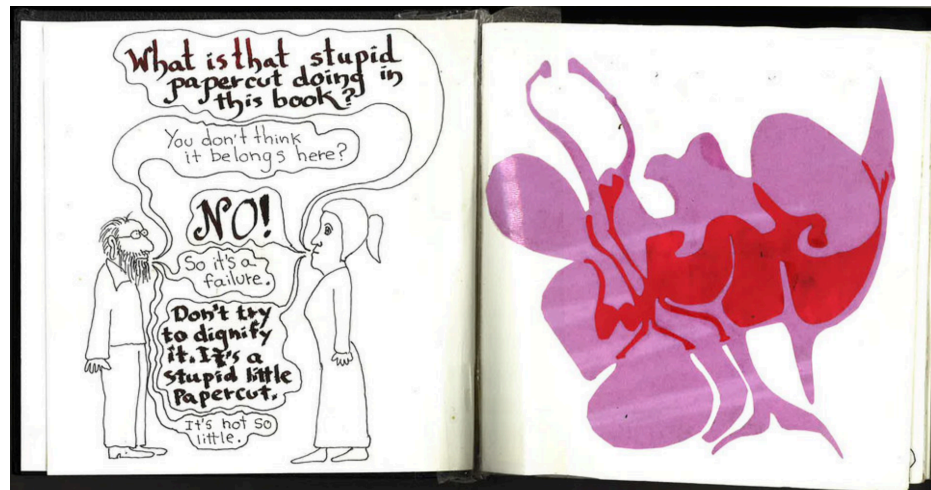 What is that stupid
papercut doing in
this book?
You don't think
it belongs here?
NO!
So it's a
failure.
Don't try
to dignify
it. It's a
stupid little
Papercut.
It's not so
little.